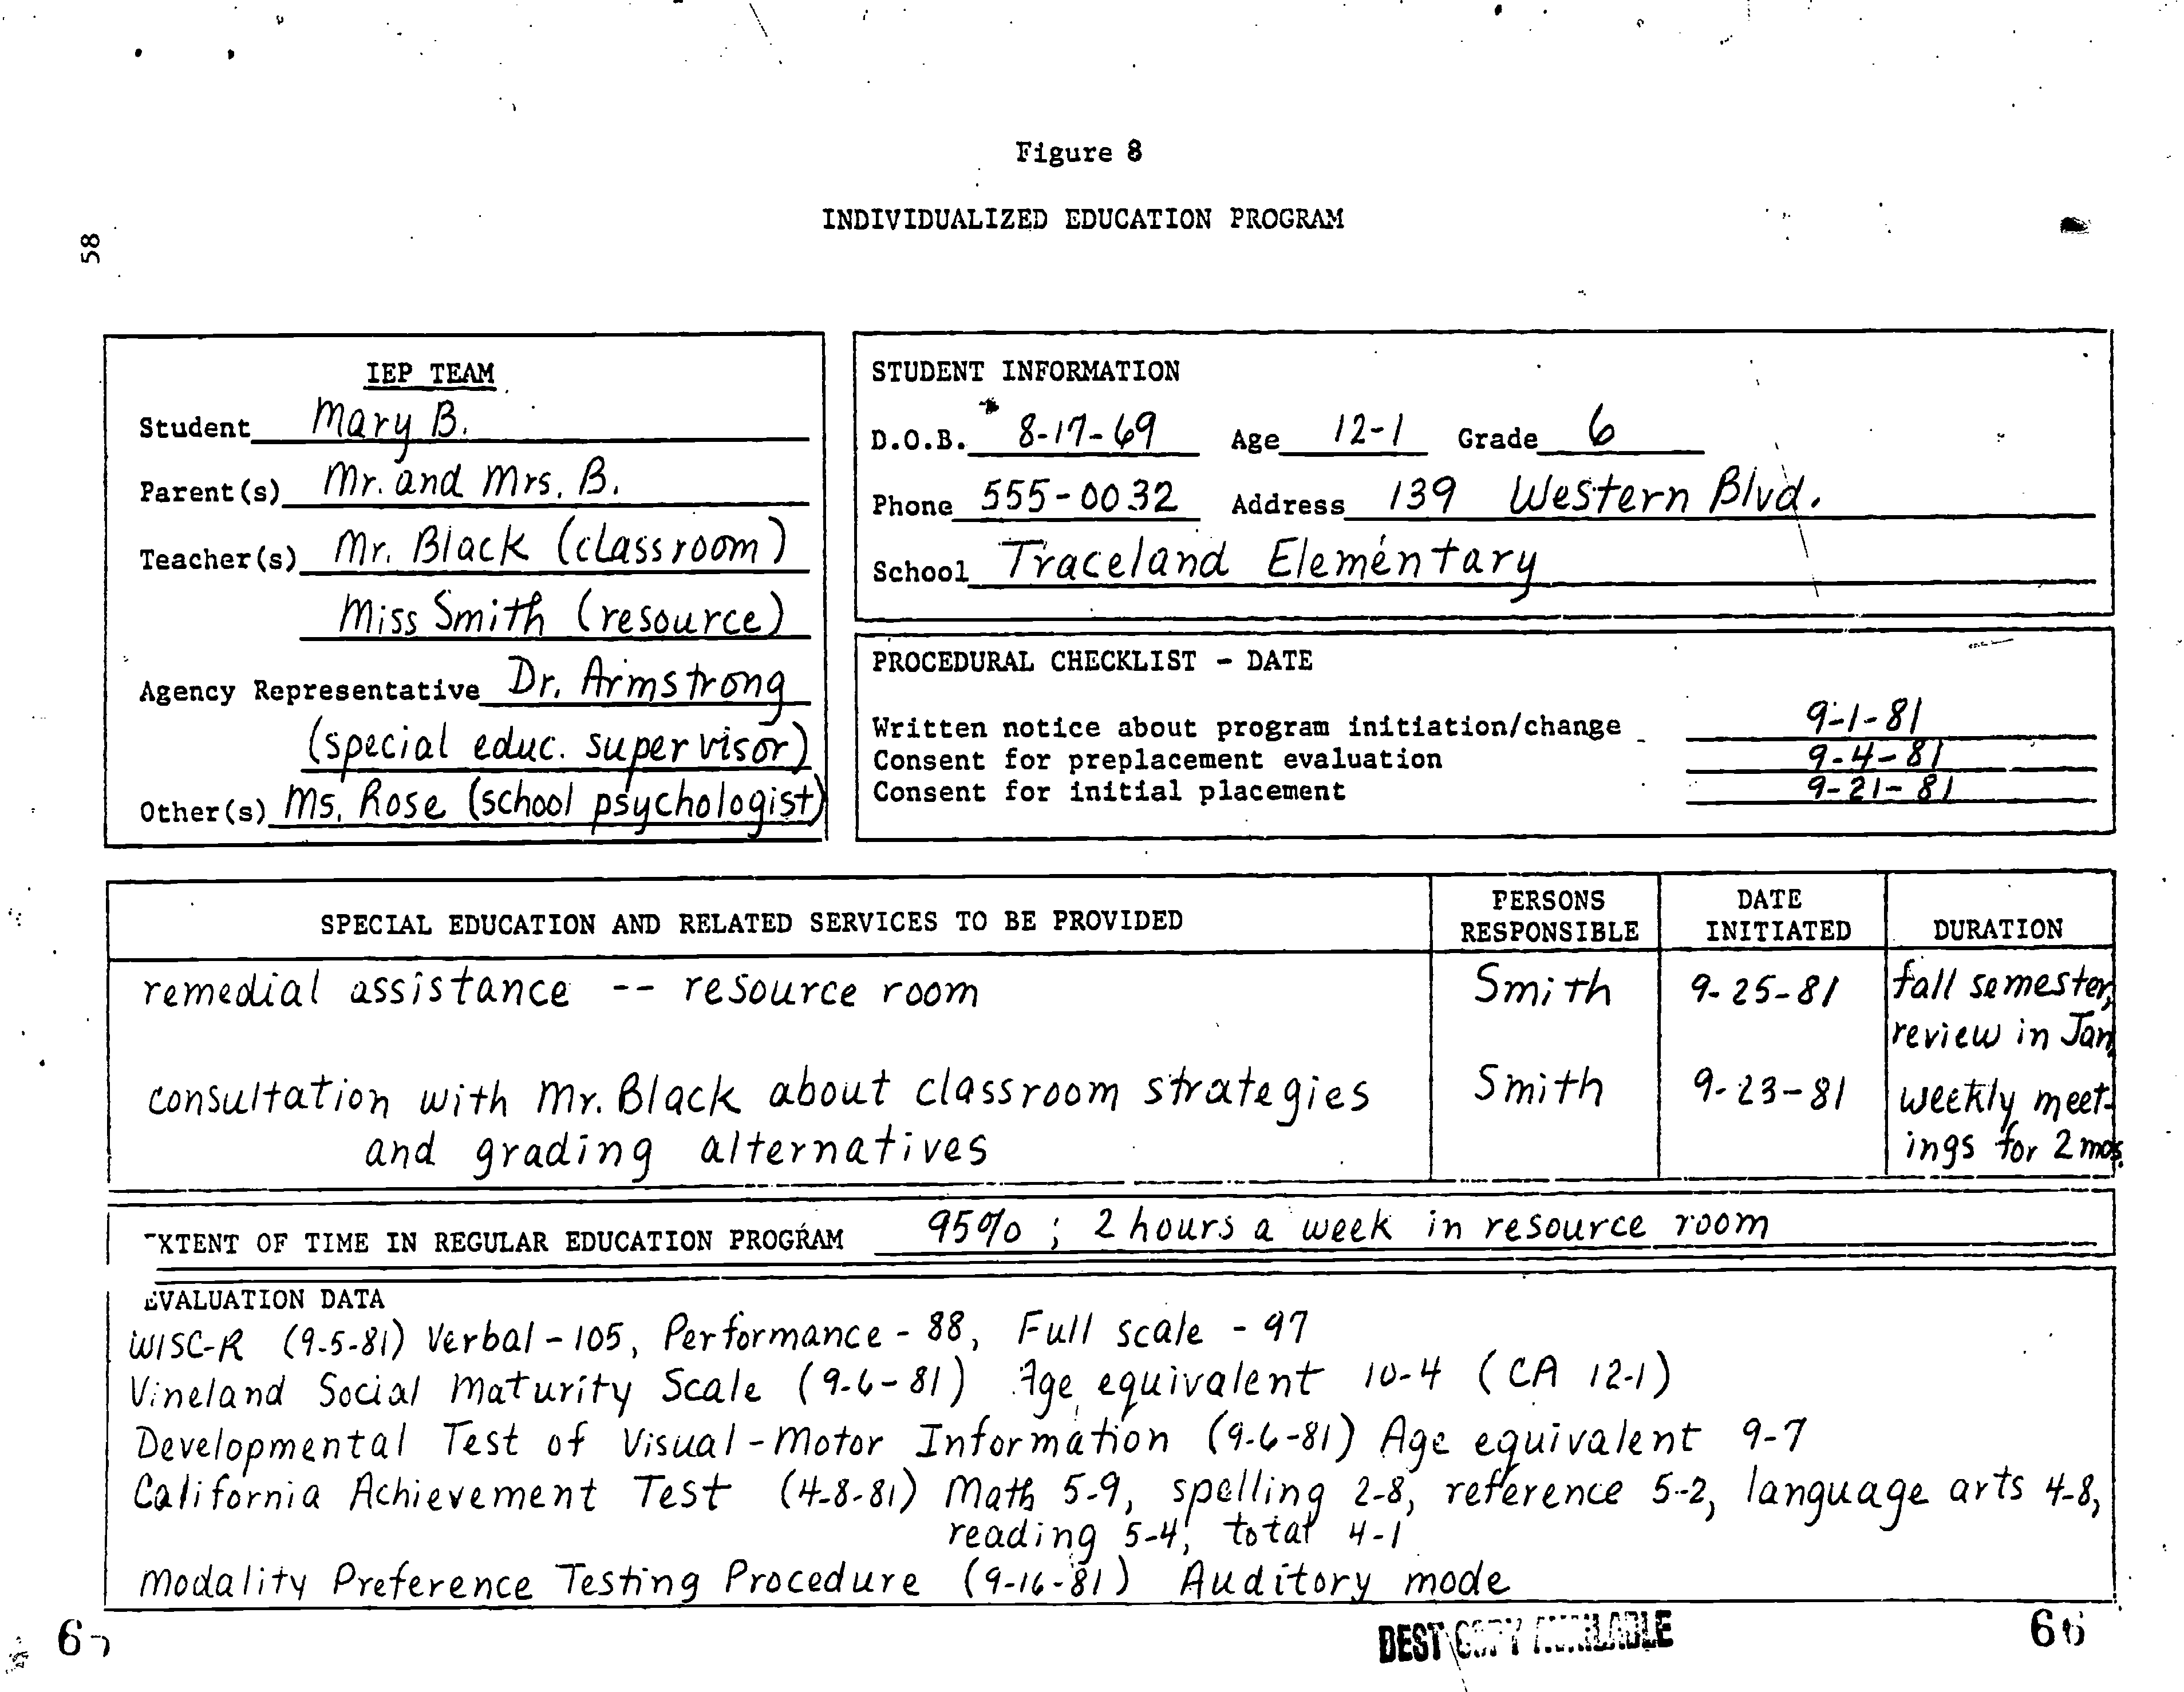 Figure 8
INDIVIDUALIZED EDUCATION PROGRAM
58
IEP TEAM
Student Mary B.
Parent(s) Mr. and Mrs. B.
Teacher(s) Mr. Black (classroom)
Miss Smith (resource)
Agency Representative Dr. Armstrong
(special educ. supervisor)
Other(s) Ms. Rose (school psychologist)
STUDENT INFORMATION
D.O.B. 8-17-69 Age 12-1 Grade 6
Phone 555-0032 Address 139 Western Blvd.
School Traceland Elementary
PROCEDURAL CHECKLIST - DATE
Written notice about program initiation/change 9-1-81
Consent for preplacement evaluation 9-4-81
Consent for initial placement 9-21-81
SPECIAL EDUCATION AND RELATED SERVICES TO BE PROVIDED PERSONS RESPONSIBLE DATE INITIATED DURATION
remedial assistance -- resource room Smith 9-25-81 fall semester,
review in Jan.
consultation with Mr. Black about classroom strategies Smith 9-23-81 weekly meet-
and grading alternatives ings for 2 mos.
EXTENT OF TIME IN REGULAR EDUCATION PROGRAM 95% ; 2 hours a week in resource room
EVALUATION DATA
WISC-R (9-5-81) Verbal - 105, Performance - 88, Full scale - 97
Vineland Social Maturity Scale (9-6-81) Age equivalent 10-4 (CA 12-1)
Developmental Test of Visual-Motor Information (9-6-81) Age equivalent 9-7
California Achievement Test (4-8-81) Math 5-9, spelling 2-8, reference 5-2, language arts 4-8,
reading 5-4, total 4-1
Modality Preference Testing Procedure (9-16-81) Auditory mode
BEST COPY AVAILABLE
66